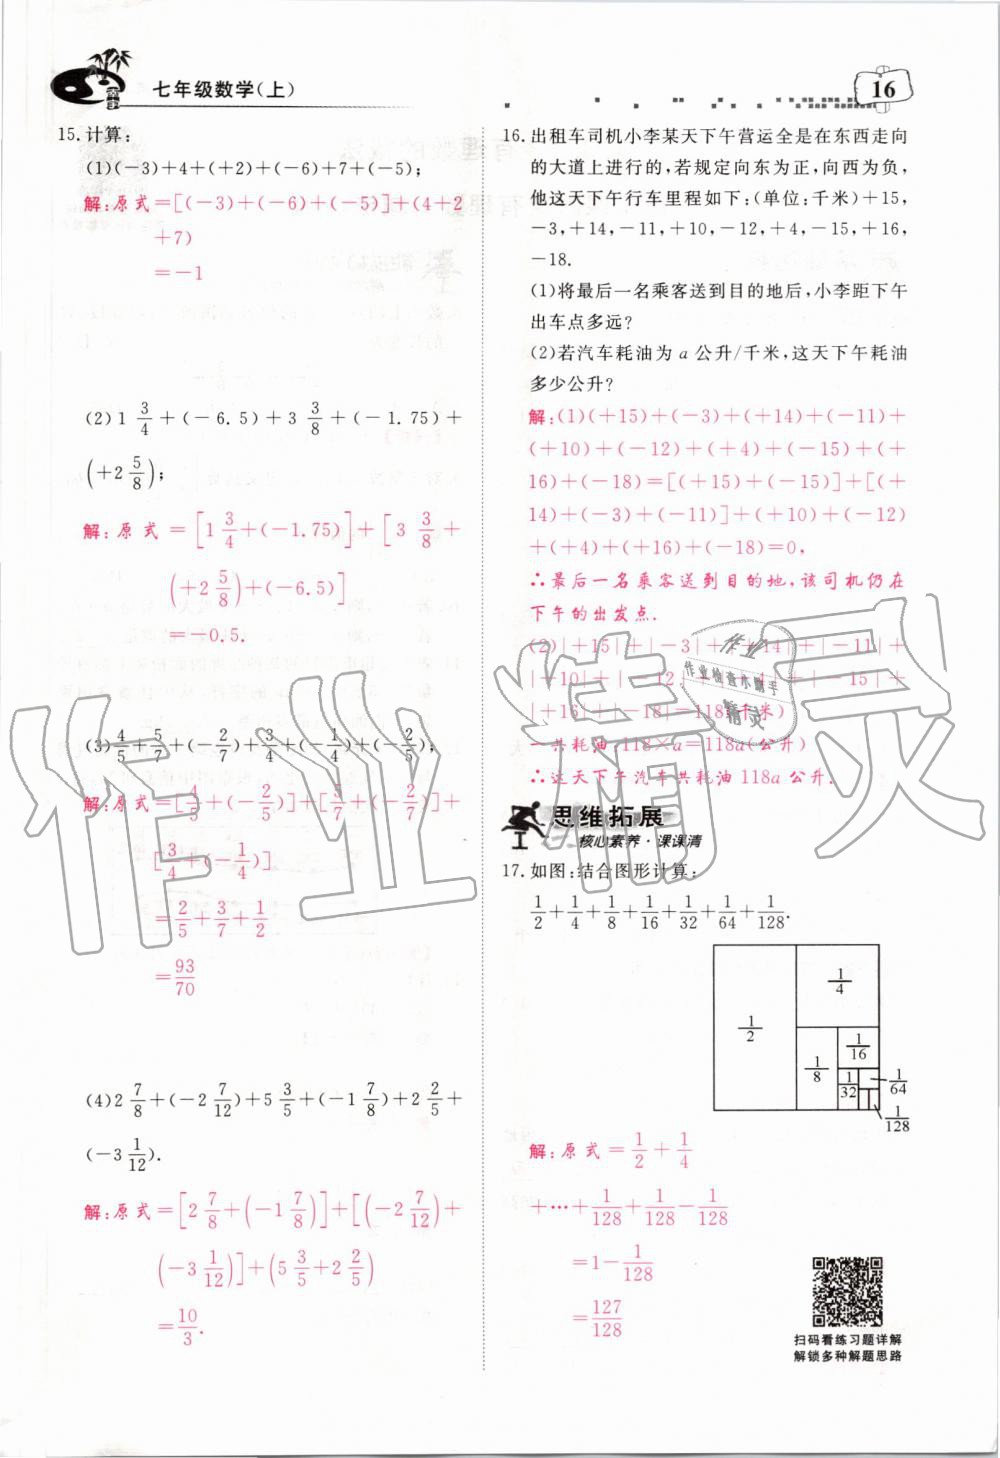 七年级数学(上)
16
15.计算:
(1)(-3)+4+(+2)+(-6)+7+(-5);
解:原式=[(-3)+(-6)+(-5)]+(4+2
+7)
=-1
(2)1 3/4+(-6.5)+3 3/8+(-1.75)+
(+2 5/8);
解:原式=[1 3/4+(-1.75)]+[3 3/8+
(+2 5/8)+(-6.5)]
=-0.5.
(3)4/5+5/7+(-2/7)+3/4+(-1/4)+(-2/5);
解:原式=[4/5+(-2/5)]+[5/7+(-2/7)]+
[3/4+(-1/4)]
=2/5+3/7+1/2
=93/70
(4)2 7/8+(-2 7/12)+5 3/5+(-1 7/8)+2 2/5+
(-3 1/12).
解:原式=[2 7/8+(-1 7/8)]+[(-2 7/12)+
(-3 1/12)]+(5 3/5+2 2/5)
=10/3.
16.出租车司机小李某天下午营运全是在东西走向
的大道上进行的,若规定向东为正,向西为负,
他这天下午行车里程如下:(单位:千米)+15,
-3,+14,-11,+10,-12,+4,-15,+16,
-18.
(1)将最后一名乘客送到目的地后,小李距下午
出车点多远?
(2)若汽车耗油为a公升/千米,这天下午耗油
多少公升?
解:(1)(+15)+(-3)+(+14)+(-11)+
(+10)+(-12)+(+4)+(-15)+(+
16)+(-18)=[(+15)+(-15)]+[(+
14)+(-3)+(-11)]+(+10)+(-12)
+(+4)+(+16)+(-18)=0,
∴最后一名乘客送到目的地,该司机仍在
下午的出发点.
(2)|+15|+|-3|+|+14|+|-11|+
|+10|+|-12|+|+4|+|-15|+
|+16|+|-18|=118(千米)
一共耗油 118×a=118a(公升)
∴这天下午汽车共耗油118a公升.
思维拓展
核心素养·课课清
17.如图:结合图形计算:
1/2+1/4+1/8+1/16+1/32+1/64+1/128.
1/2
1/4
1/8
1/16
1/32
1/64
1/128
解:原式=1/2+1/4
+…+1/128+1/128-1/128
=1-1/128
=127/128
扫码看练习题详解
解锁多种解题思路
作业精灵
作业
作业检查小助手
精灵